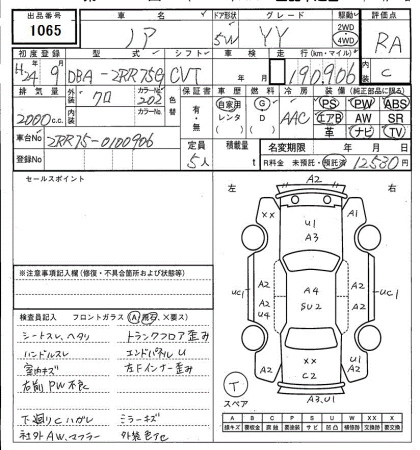 出品番号 車名 ドア形状 グレード 駆動 評価点
1065 ノア 5W YY 2WD 4WD RA
初度登録 型式 シフト 車検 走行(km・マイル) 内装
H24年 9月 DBA-ZRR75G CVT 年 月 190,906 C
排気量 外装 色 カラーNo. 色替 保証書 車歴 燃料 冷房 装備(純正部品に限る)
2000c.c. クロ 202 有・無 自家用 レンタ G D AAC PS PW ABS
内装 カラーNo. エアB AW SR
革 ナビ TV
車台No ZRR75-0100906 定員 積載量 名変期限 年 月 日
登録No 5人 t R料金 未預託・預託済 12530円
セールスポイント
左 右
A2
XX A1
U1
A3
A2 A2
UC1 A2 A4 A2 UC1
U4 SU2
A2 XX A2
C2
A3.U1
T
スペア
※注意事項記入欄(修復・不具合箇所および状態等)
検査員記入 フロントガラス(A・飛石・X要ス)
シートスレ、ヘタリ トランクフロア歪み
ハンドルスレ エンドパネルU
室内キズ 左Fインナー歪み
右前PW不良
下廻りCハガレ ミラーキズ
社外AW、マフラー 外装色アセ
A B C P S U W X XX
線キズ 要板金 腐蝕 要塗装 サビ 凹凸 補修跡 要交換 交換済